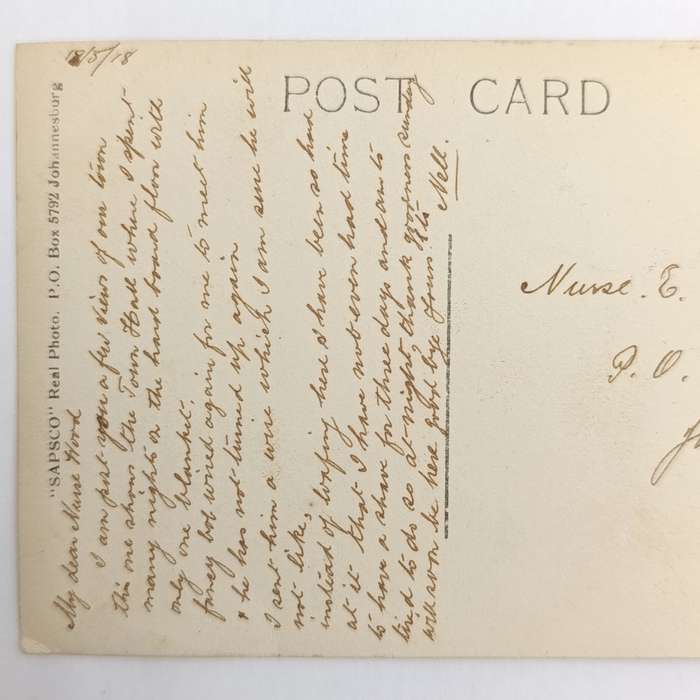 18/5/18
"SAPSCO" Real Photo. P.O. Box 5792 Johannesburg
POST CARD
My dear Nurse Hood
I am post you a few views of our town
this one shows the Town Hall where I spent
many nights on the hard board floor with
only one blanket.
fancy bob wired again for me to meet him
& he has not turned up again
I sent him a wire which I am sure he will
not like,
instead of loafing here I have been so hard
at it that I have not even had time
to have a shave for three days and am to
tired to do so at night, thank goodness sunday
will soon be here good bye Yours
Nell.
Nurse. E.
P. O.